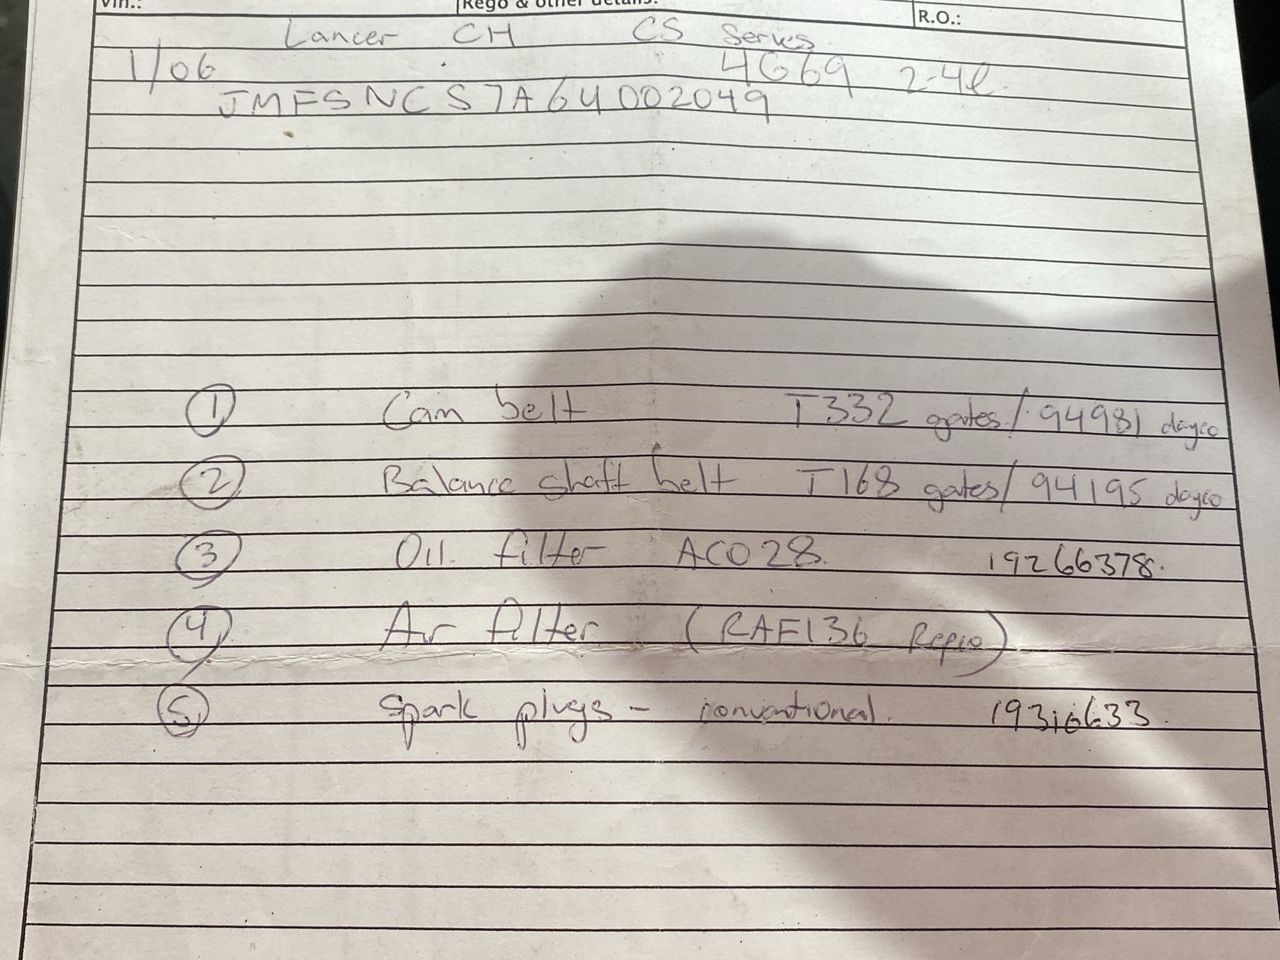 Vin.: Rego & other details: R.O.:
Lancer CH CS Series
1/06 4G69 2.4l
JMFSNCS7A6U002049
1 Cam belt T332 gates / 94981 dayco
2 Balance shaft belt T168 gates / 94195 dayco
3 Oil filter ACO28. 19266378.
4 Air filter (RAF136 Repco)
5 Spark plugs - conventional. 19316633.